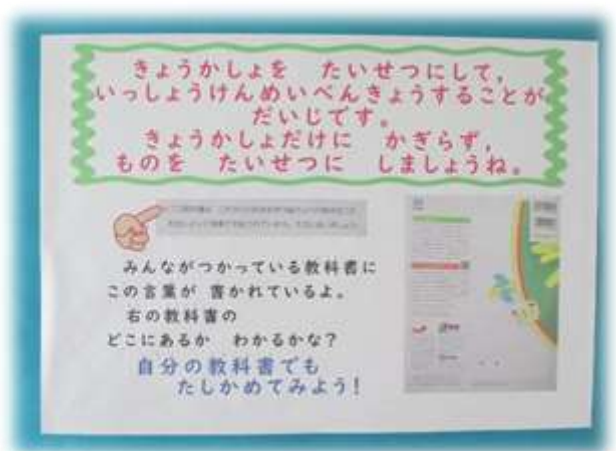 きょうかしょを　たいせつにして，
いっしょうけんめいべんきょうすることが
だいじです。
きょうかしょだけに　かぎらず，
ものを　たいせつに　しましょうね。
みんながつかっている教科書に
この言葉が　書かれているよ。
右の教科書の
どこにあるか　わかるかな？
自分の教科書でも
たしかめてみよう！